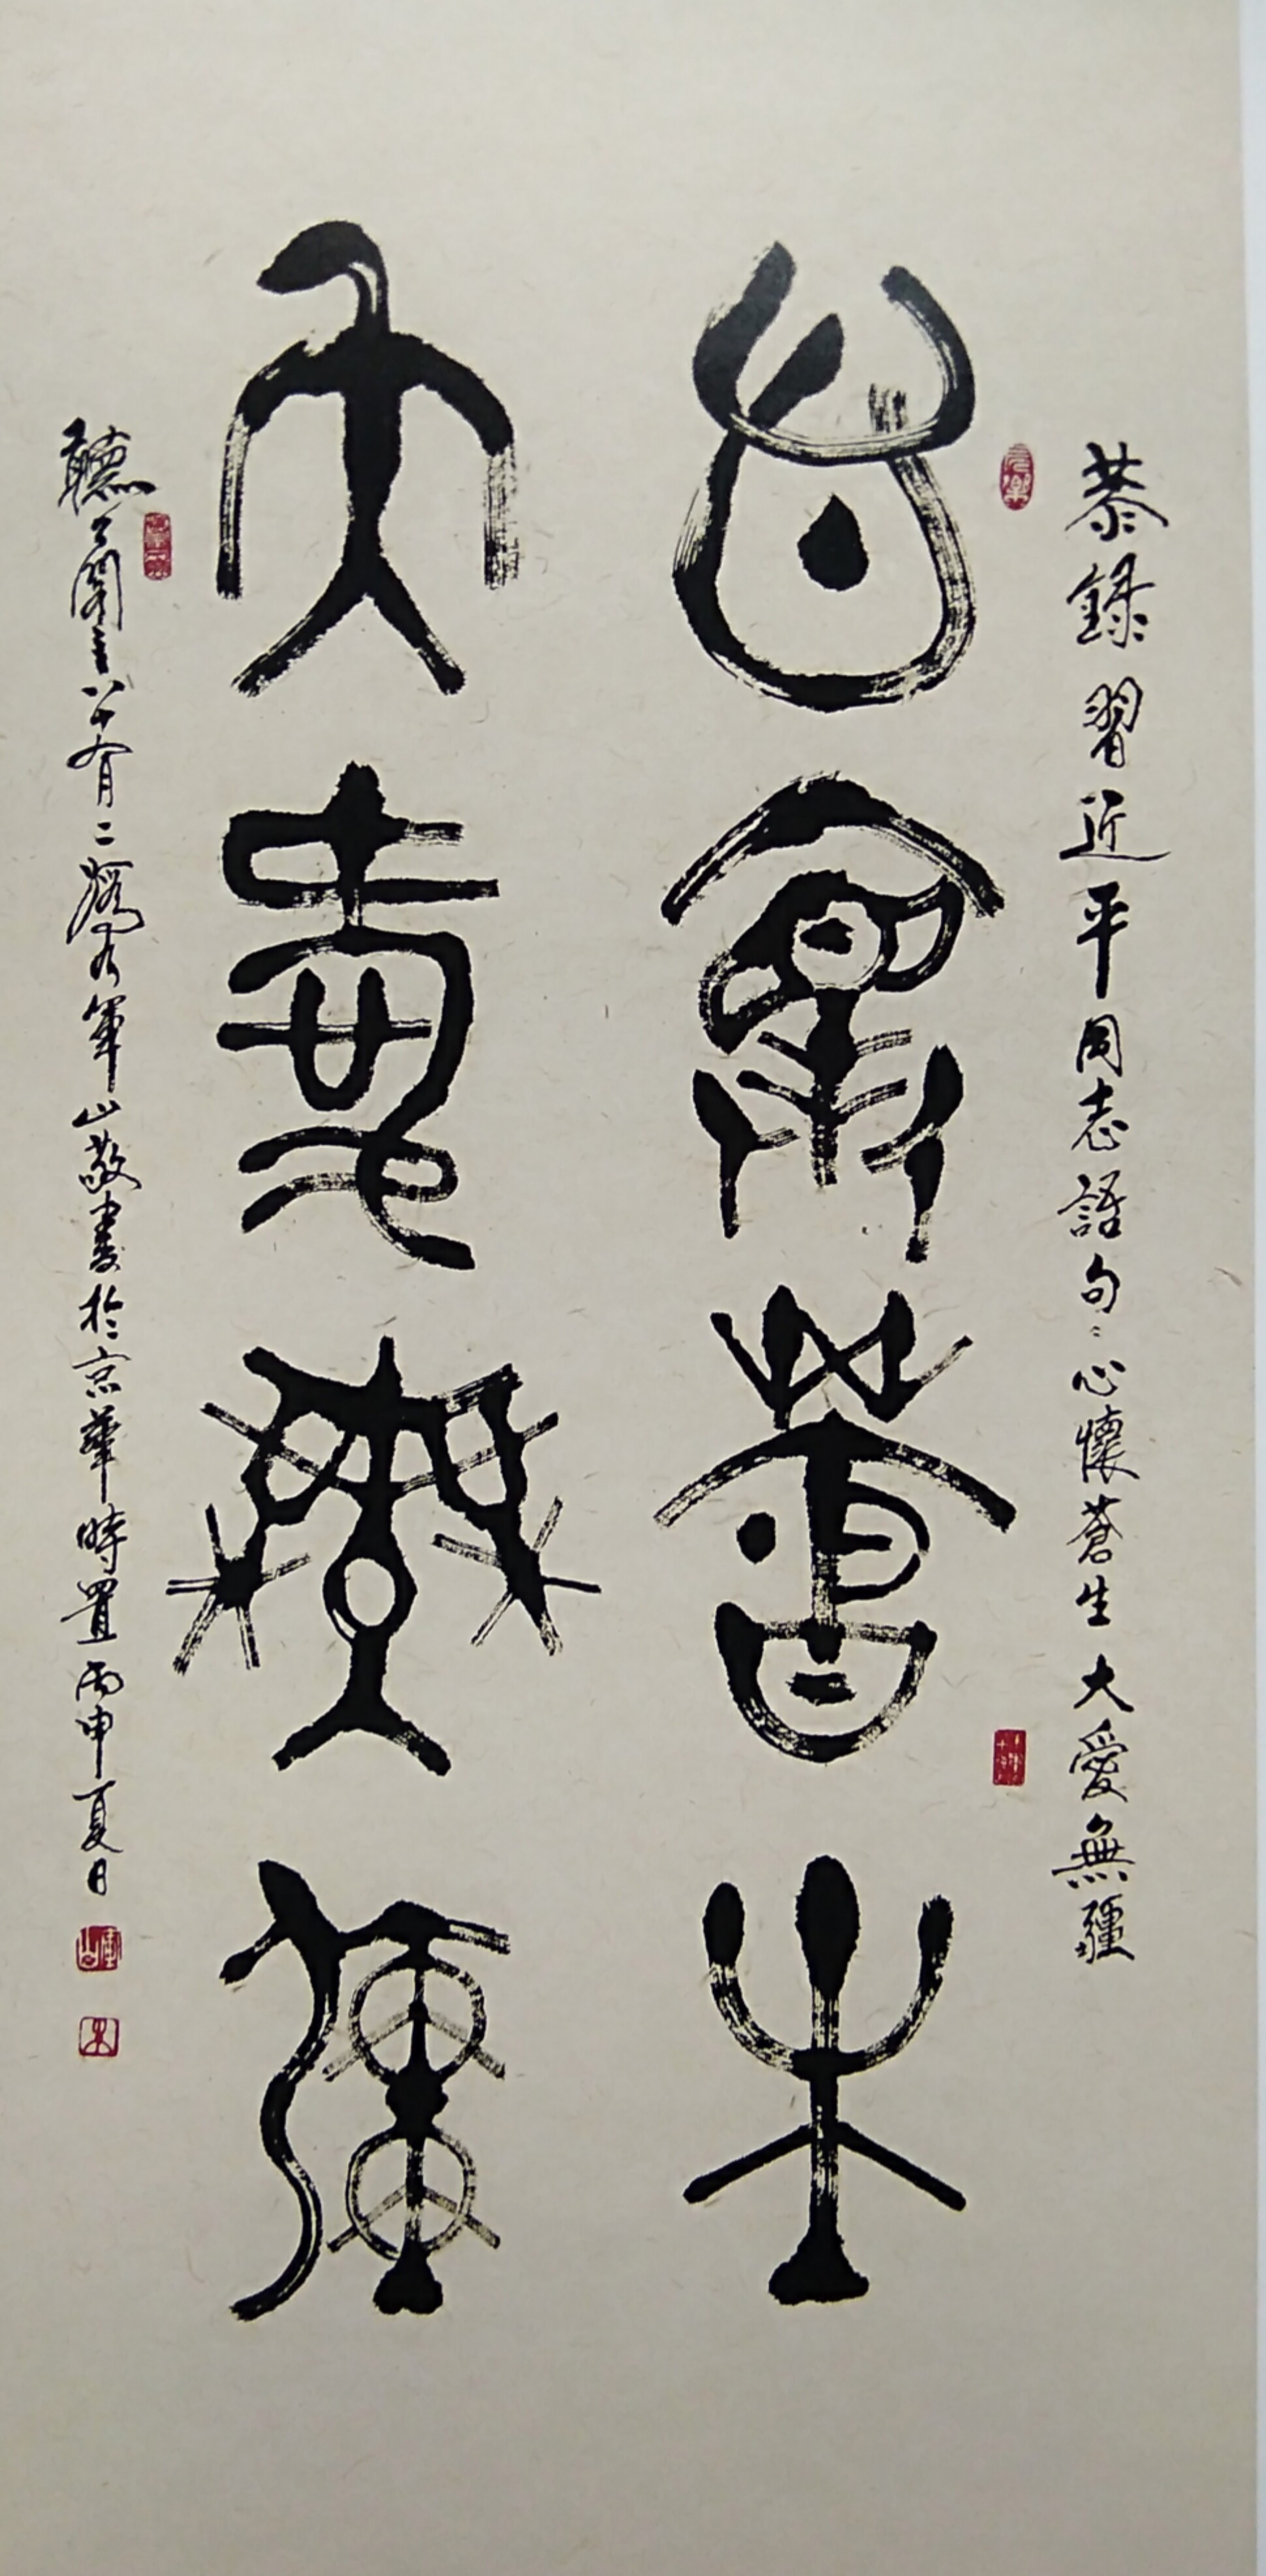 恭錄習近平同志語句：心懷蒼生大愛無疆
心懷蒼生
大愛無疆
聽公閣主八十有二叟军山敬書於京華時置丙申夏日